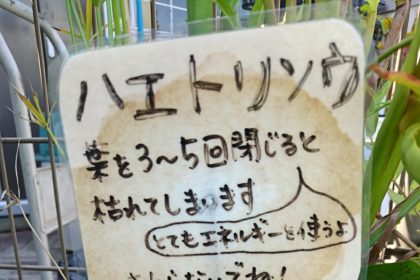 ハエトリソウ
葉を3～5回閉じると
枯れてしまいます
とてもエネルギーを使うよ